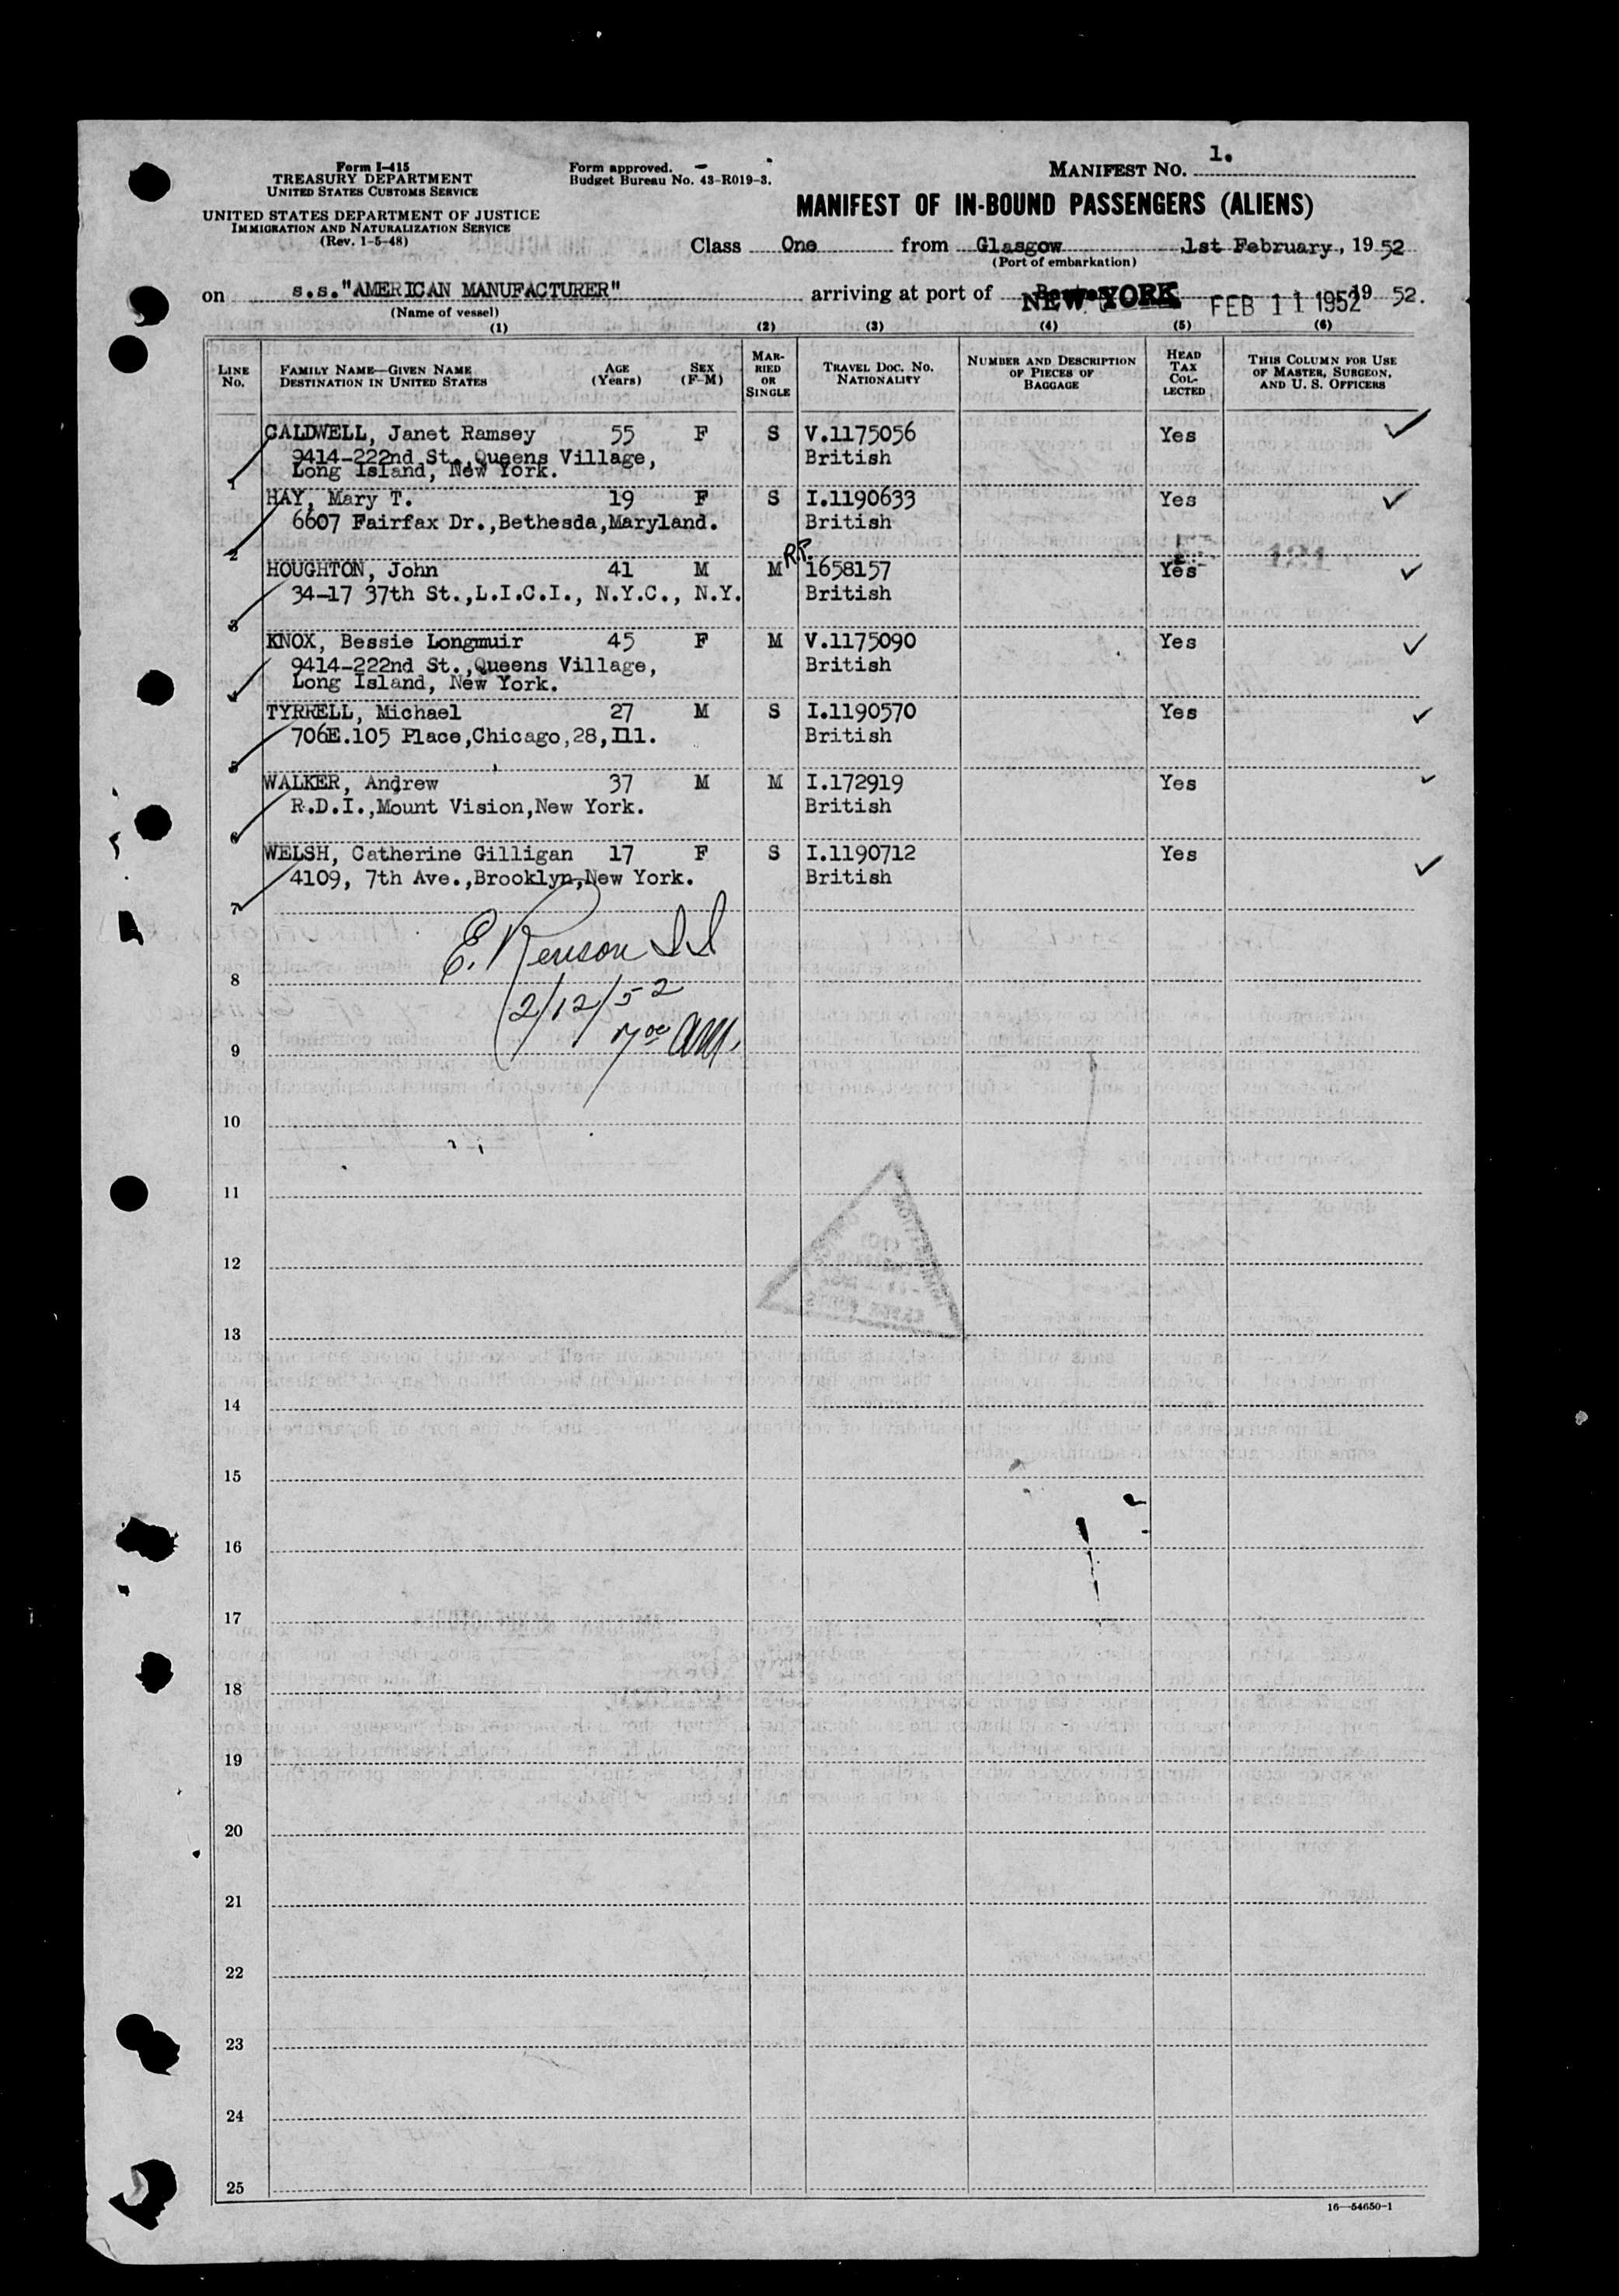 Form I-415
TREASURY DEPARTMENT
UNITED STATES CUSTOMS SERVICE
UNITED STATES DEPARTMENT OF JUSTICE
IMMIGRATION AND NATURALIZATION SERVICE
(Rev. 1-5-48)
Form approved.
Budget Bureau No. 43-R019-3.
MANIFEST No. 1.
MANIFEST OF IN-BOUND PASSENGERS (ALIENS)
Class One from Glasgow 1st February, 19 52
(Port of embarkation)
on s.s."AMERICAN MANUFACTURER" arriving at port of NEW YORK FEB 11 1952 19 52.
(Name of vessel)
(1) (2) (3) (4) (5) (6)
LINE No. FAMILY NAME—GIVEN NAME DESTINATION IN UNITED STATES AGE (Years) SEX (F-M) MARRIED OR SINGLE TRAVEL DOC. No. NATIONALITY NUMBER AND DESCRIPTION OF PIECES OF BAGGAGE HEAD TAX COLLECTED THIS COLUMN FOR USE OF MASTER, SURGEON, AND U. S. OFFICERS
CALDWELL, Janet Ramsey 55 F S V.1175056 Yes
9414-222nd St.,Queens Village, British
Long Island, New York.
1
HAY, Mary T. 19 F S I.1190633 Yes
6607 Fairfax Dr.,Bethesda,Maryland. British
2
R.P.
HOUGHTON, John 41 M M 1658157 Yes
34-17 37th St.,L.I.C.I., N.Y.C., N.Y. British
3
KNOX, Bessie Longmuir 45 F M V.1175090 Yes
9414-222nd St.,Queens Village, British
Long Island, New York.
4
TYRRELL, Michael 27 M S I.1190570 Yes
706E.105 Place,Chicago,28,Ill. British
5
WALKER, Andrew 37 M M I.172919 Yes
R.D.I.,Mount Vision,New York. British
6
WELSH, Catherine Gilligan 17 F S I.1190712 Yes
4109, 7th Ave.,Brooklyn,New York. British
7
E. Renson II
8
2/12/52
7:00 AM.
9
10
11
12
13
14
15
16
17
18
19
20
21
22
23
24
25
16—54650-1